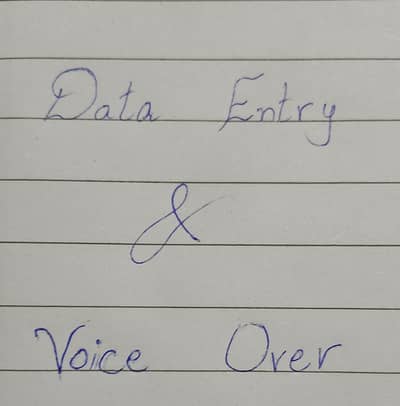 Data Entry
&
Voice Over